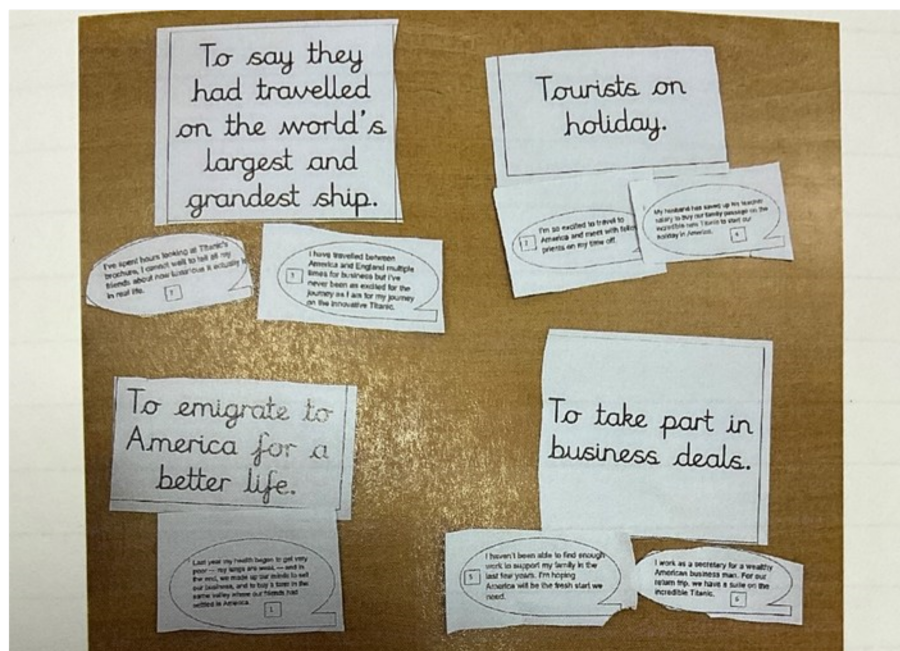 To say they
had travelled
on the world's
largest and
grandest ship.
I've spent hours looking at Titanic's
brochure, I cannot wait to tell all my
friends about how luxurious it actually is
in real life.
7
I have travelled between
America and England multiple
times for business but I've
never been as excited for the
journey as I am for my journey
on the innovative Titanic.
Tourists on
holiday.
I'm so excited to travel to
America and meet with fellow
priests on my time off.
2
My husband has saved up his teacher
salary to buy our family passage on the
incredible new Titanic to start our
holiday in America.
4
To emigrate to
America for a
better life.
Last year my health began to get very
poor — my lungs are weak, — and in
the end, we made up our minds to sell
our business, and to buy a farm in the
same valley where our friends had
settled in America.
1
To take part in
business deals.
I haven't been able to find enough
work to support my family in the
last few years. I'm hoping
America will be the fresh start we
need.
5
I work as a secretary for a wealthy
American business man. For our
return trip, we have a suite on the
incredible Titanic.
6